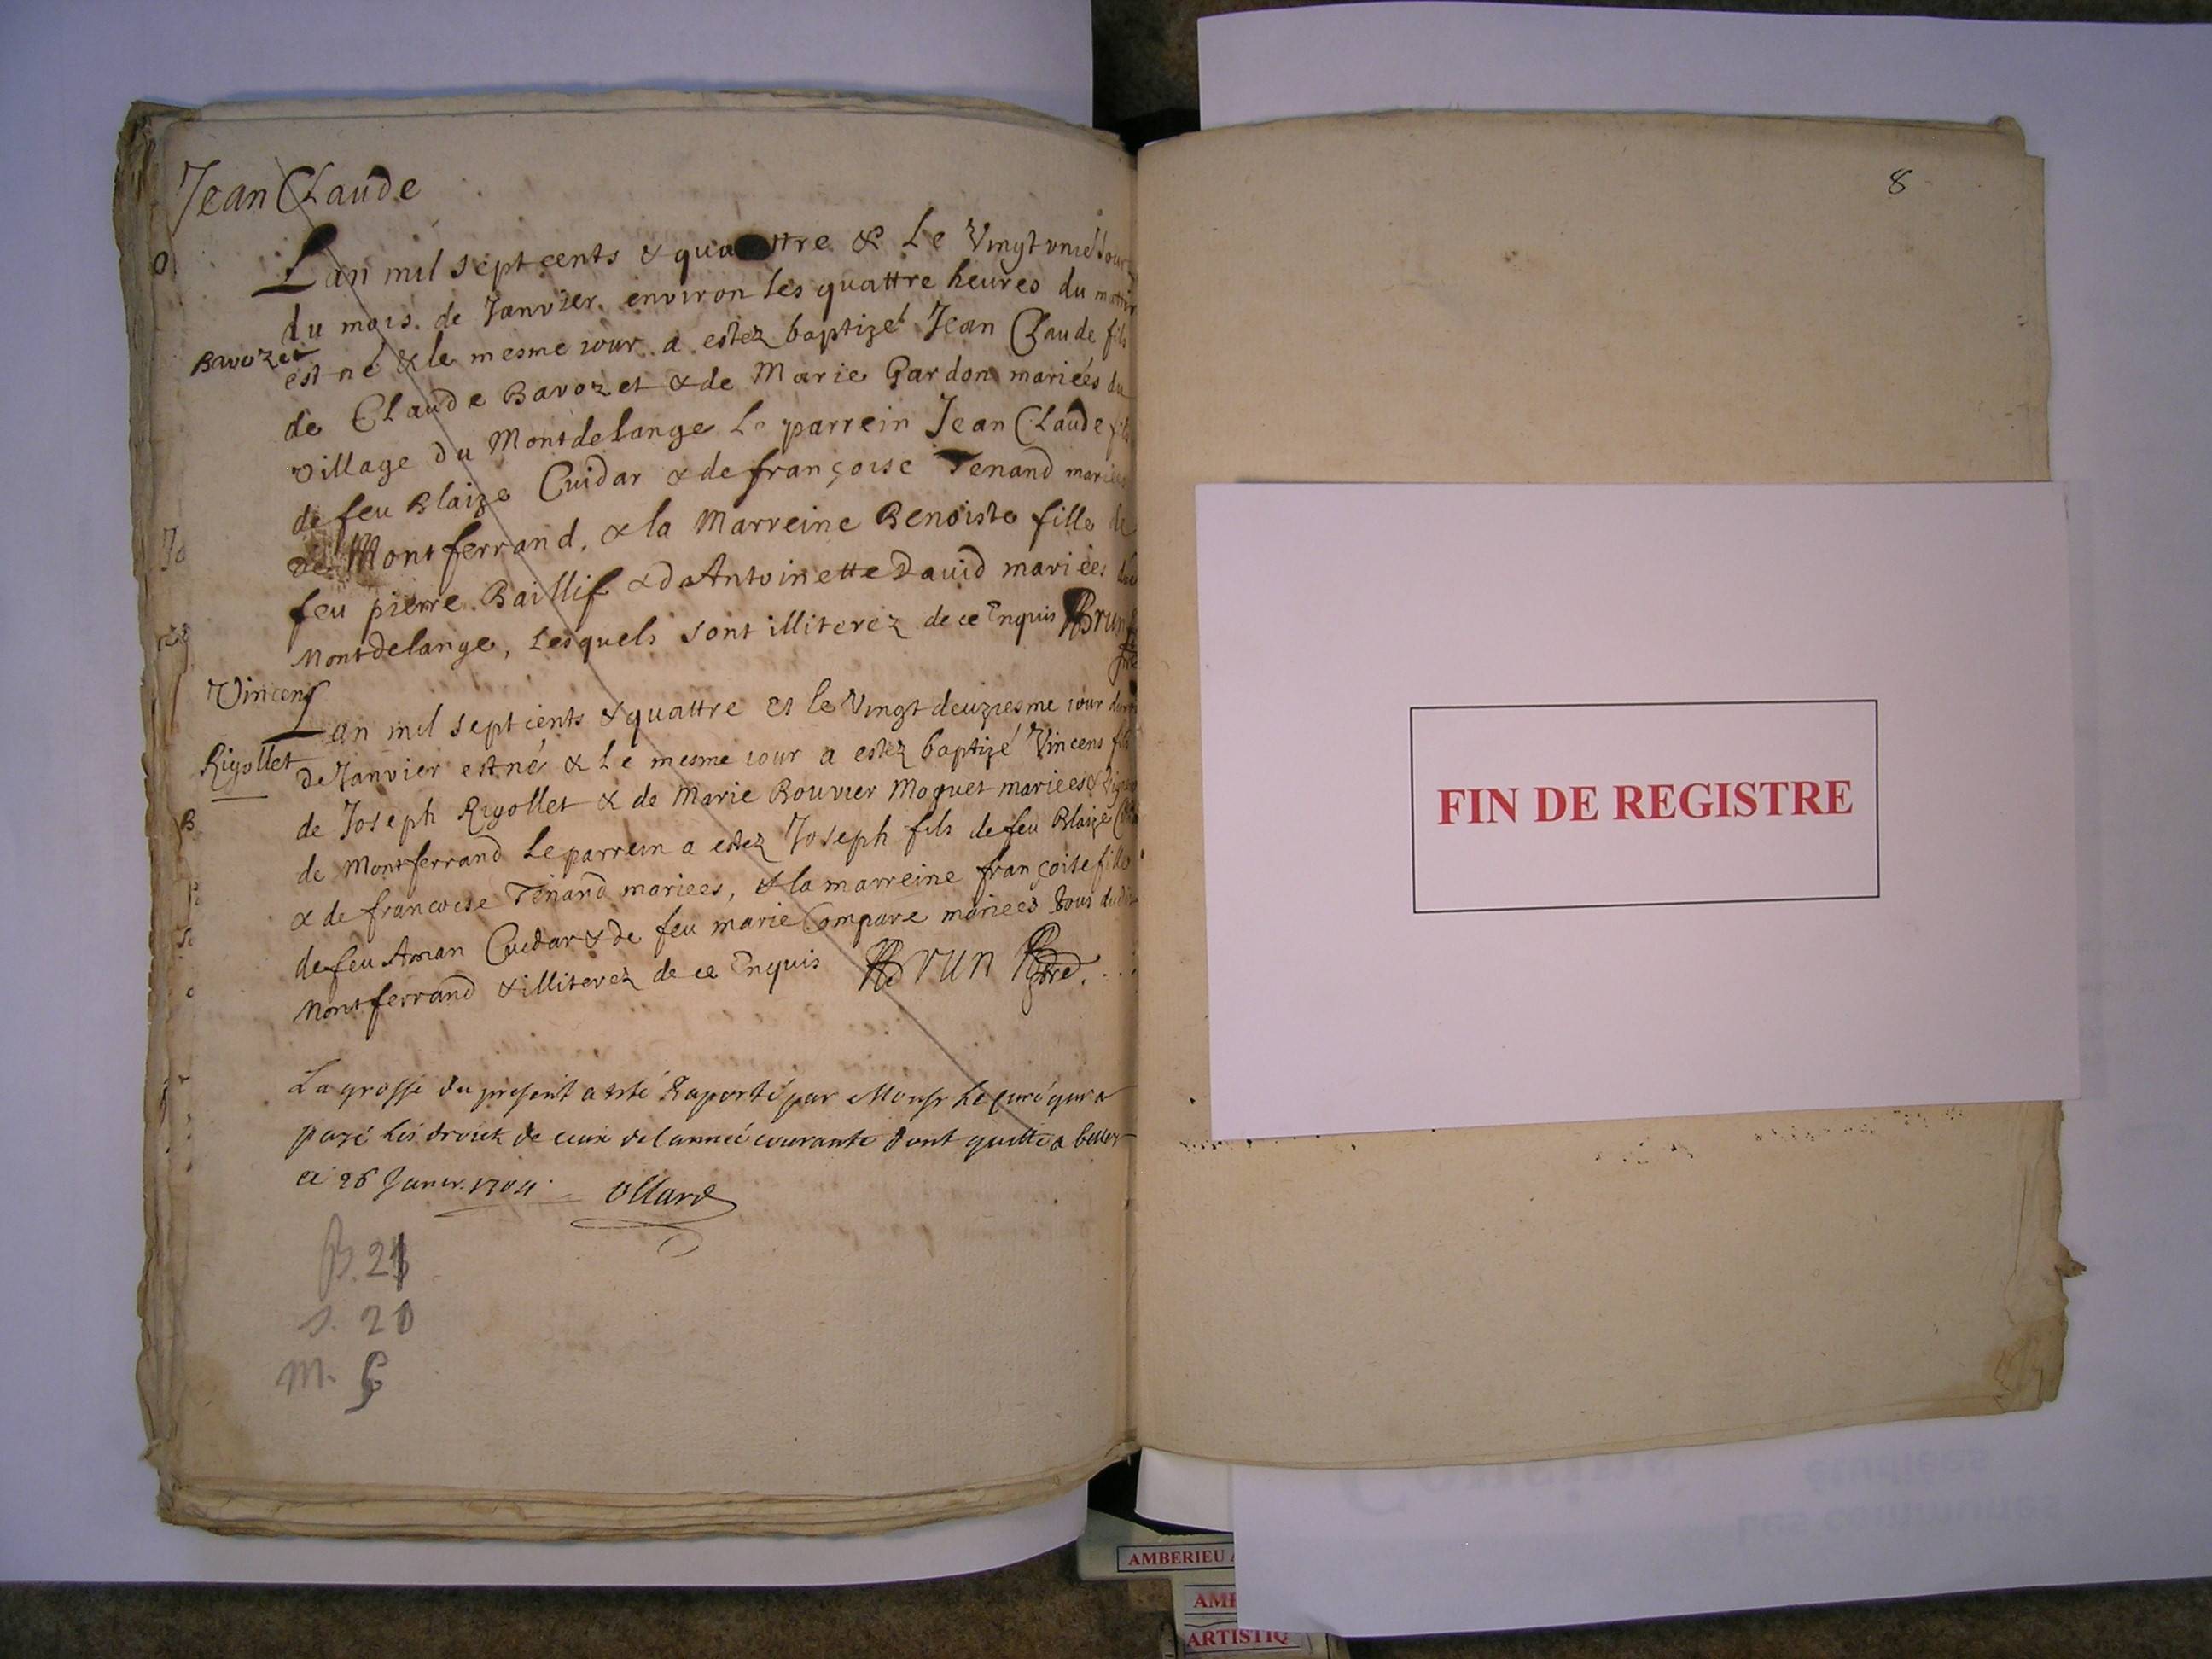 Jean Claude
Lan mil septcents & quattre & Le Vingt vnie Jour
du mois de Janvier environ les quattre heures du matin
Bavozet
est né & le mesme iour a estez baptizé Jean Claude fils
de Claude Bavozet & de Marie Gardon mariées du
village du Montdelange Le parrein Jean Claude fils
de feu Blaize Cuidar & de françoise Tenand mariées
de Montferrand, & la Marreine Benoiste fille de
feu pierre Baillif & dAntoinette David mariées du
Montdelange, Lesquels sont illiterez de ce Enquis Brun
Vincens
Lan mil septcents & quattre et le Vingt deuziesme iour du
Rigollet
de Janvier est né & Le mesme iour a estez baptizé Vincens fils
de Joseph Rigollet & de Marie Bouvier Moquet mariees
de Montferrand Le parrein a estez Joseph fils de feu Blaize
& de francoise Tenand mariees, & la marreine françoise fille
de feu Aman Cuidar & de feu marie Compare mariees tous dudit
Montferrand & illiterez de ce Enquis Brun Pbre.
La grosse du present a esté Raporté par Monsr Le curé qui a
payé Les droits de ceux de l'année courante dont quitte a belley
ce 26 Janvr. 1704. Ollard
B. 21
S. 20
M. 6
8
FIN DE REGISTRE
AMBERIEU
AMB
ARTISTIQ